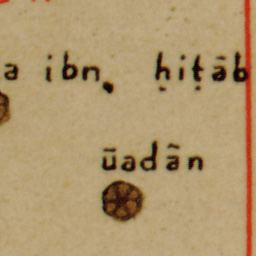 a ibn, ḥiṭāb
ūadān